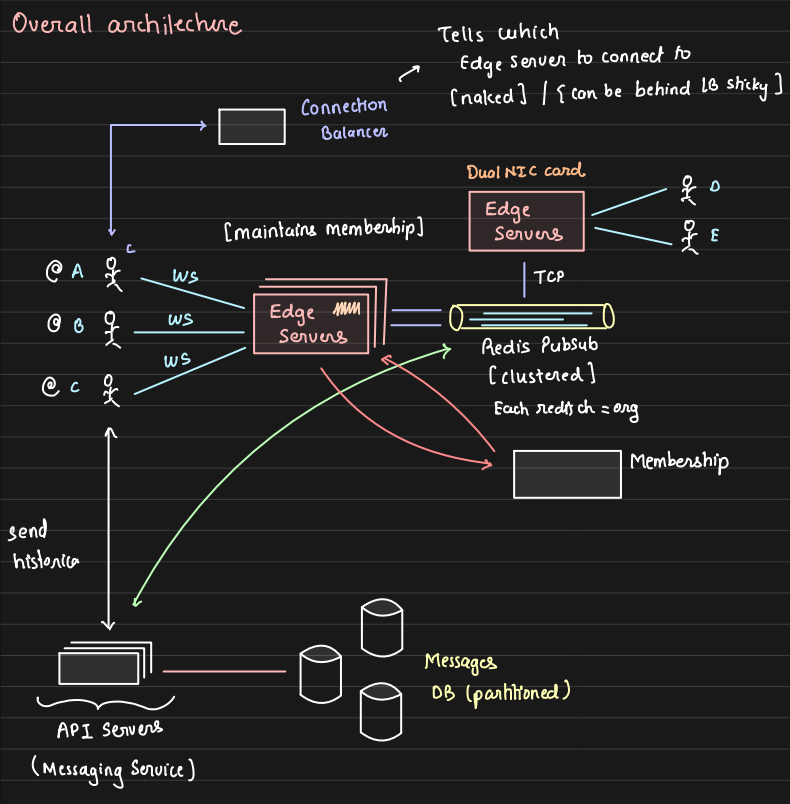 Overall architechure
Tells which
Edge Server to connect to
[naked] / { can be behind LB sticky ]
Connection
Balancer
Dual NIC card
Edge
Servers
D
E
[maintains membership]
C
@ A
WS
@ B
WS
@ C
WS
Edge
Servers
TCP
Redis Pubsub
[clustered]
Each redis ch = org
Membership
send
historica
API Servers
(Messaging Service)
Messages
DB (partitioned)